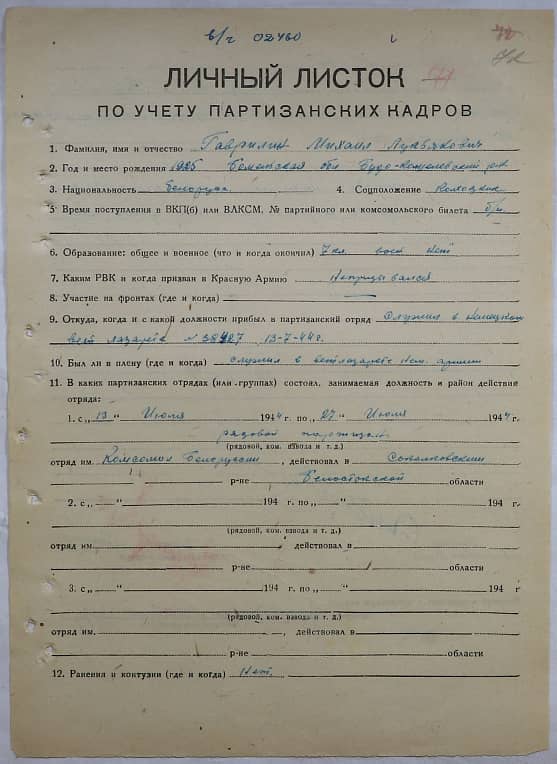 в/ч 02460
ЛИЧНЫЙ ЛИСТОК
ПО УЧЕТУ ПАРТИЗАНСКИХ КАДРОВ
1. Фамилия, имя и отчество Гаврилин Михаил
2. Год и место рождения 1925 Гомельская обл Буда-Кошелевский р-н
3. Национальность Белорус 4. Соцположение Колхозник
5. Время поступления в ВКП(б) или ВЛКСМ, № партийного или комсомольского билета б/п
6. Образование: общее и военное (что и когда окончил) 7 кл. воен нет
7. Каким РВК и когда призван в Красную Армию Непризывался
8. Участие на фронтах (где и когда) —
9. Откуда, когда и с какой должности прибыл в партизанский отряд Служил в немецком
вет лазарете № 13-7-44 г.
10. Был ли в плену (где и когда) служил в ветлазарете нем. армии
11. В каких партизанских отрядах (или группах) состоял, занимаемая должность и район действия
отряда:
1. с „13“ Июля 1944 г. по „27“ Июля 1944 г.
рядовой партизан
(рядовой, ком. взвода и т. д.)
отряд им. Комсомол Белоруссии, действовал в Сокольовским
р-не Белостокской области
2. с „ “ 194 г. по „ “ 194 г.
(рядовой, ком. взвода и т. д.)
отряд им. , действовал в
р-не области
3. с „ “ 194 г. по „ “ 194 г.
(рядовой, ком. взвода и т. д.)
отряд им. , действовал в
р-не области
12. Ранения и контузии (где и когда) Нет.